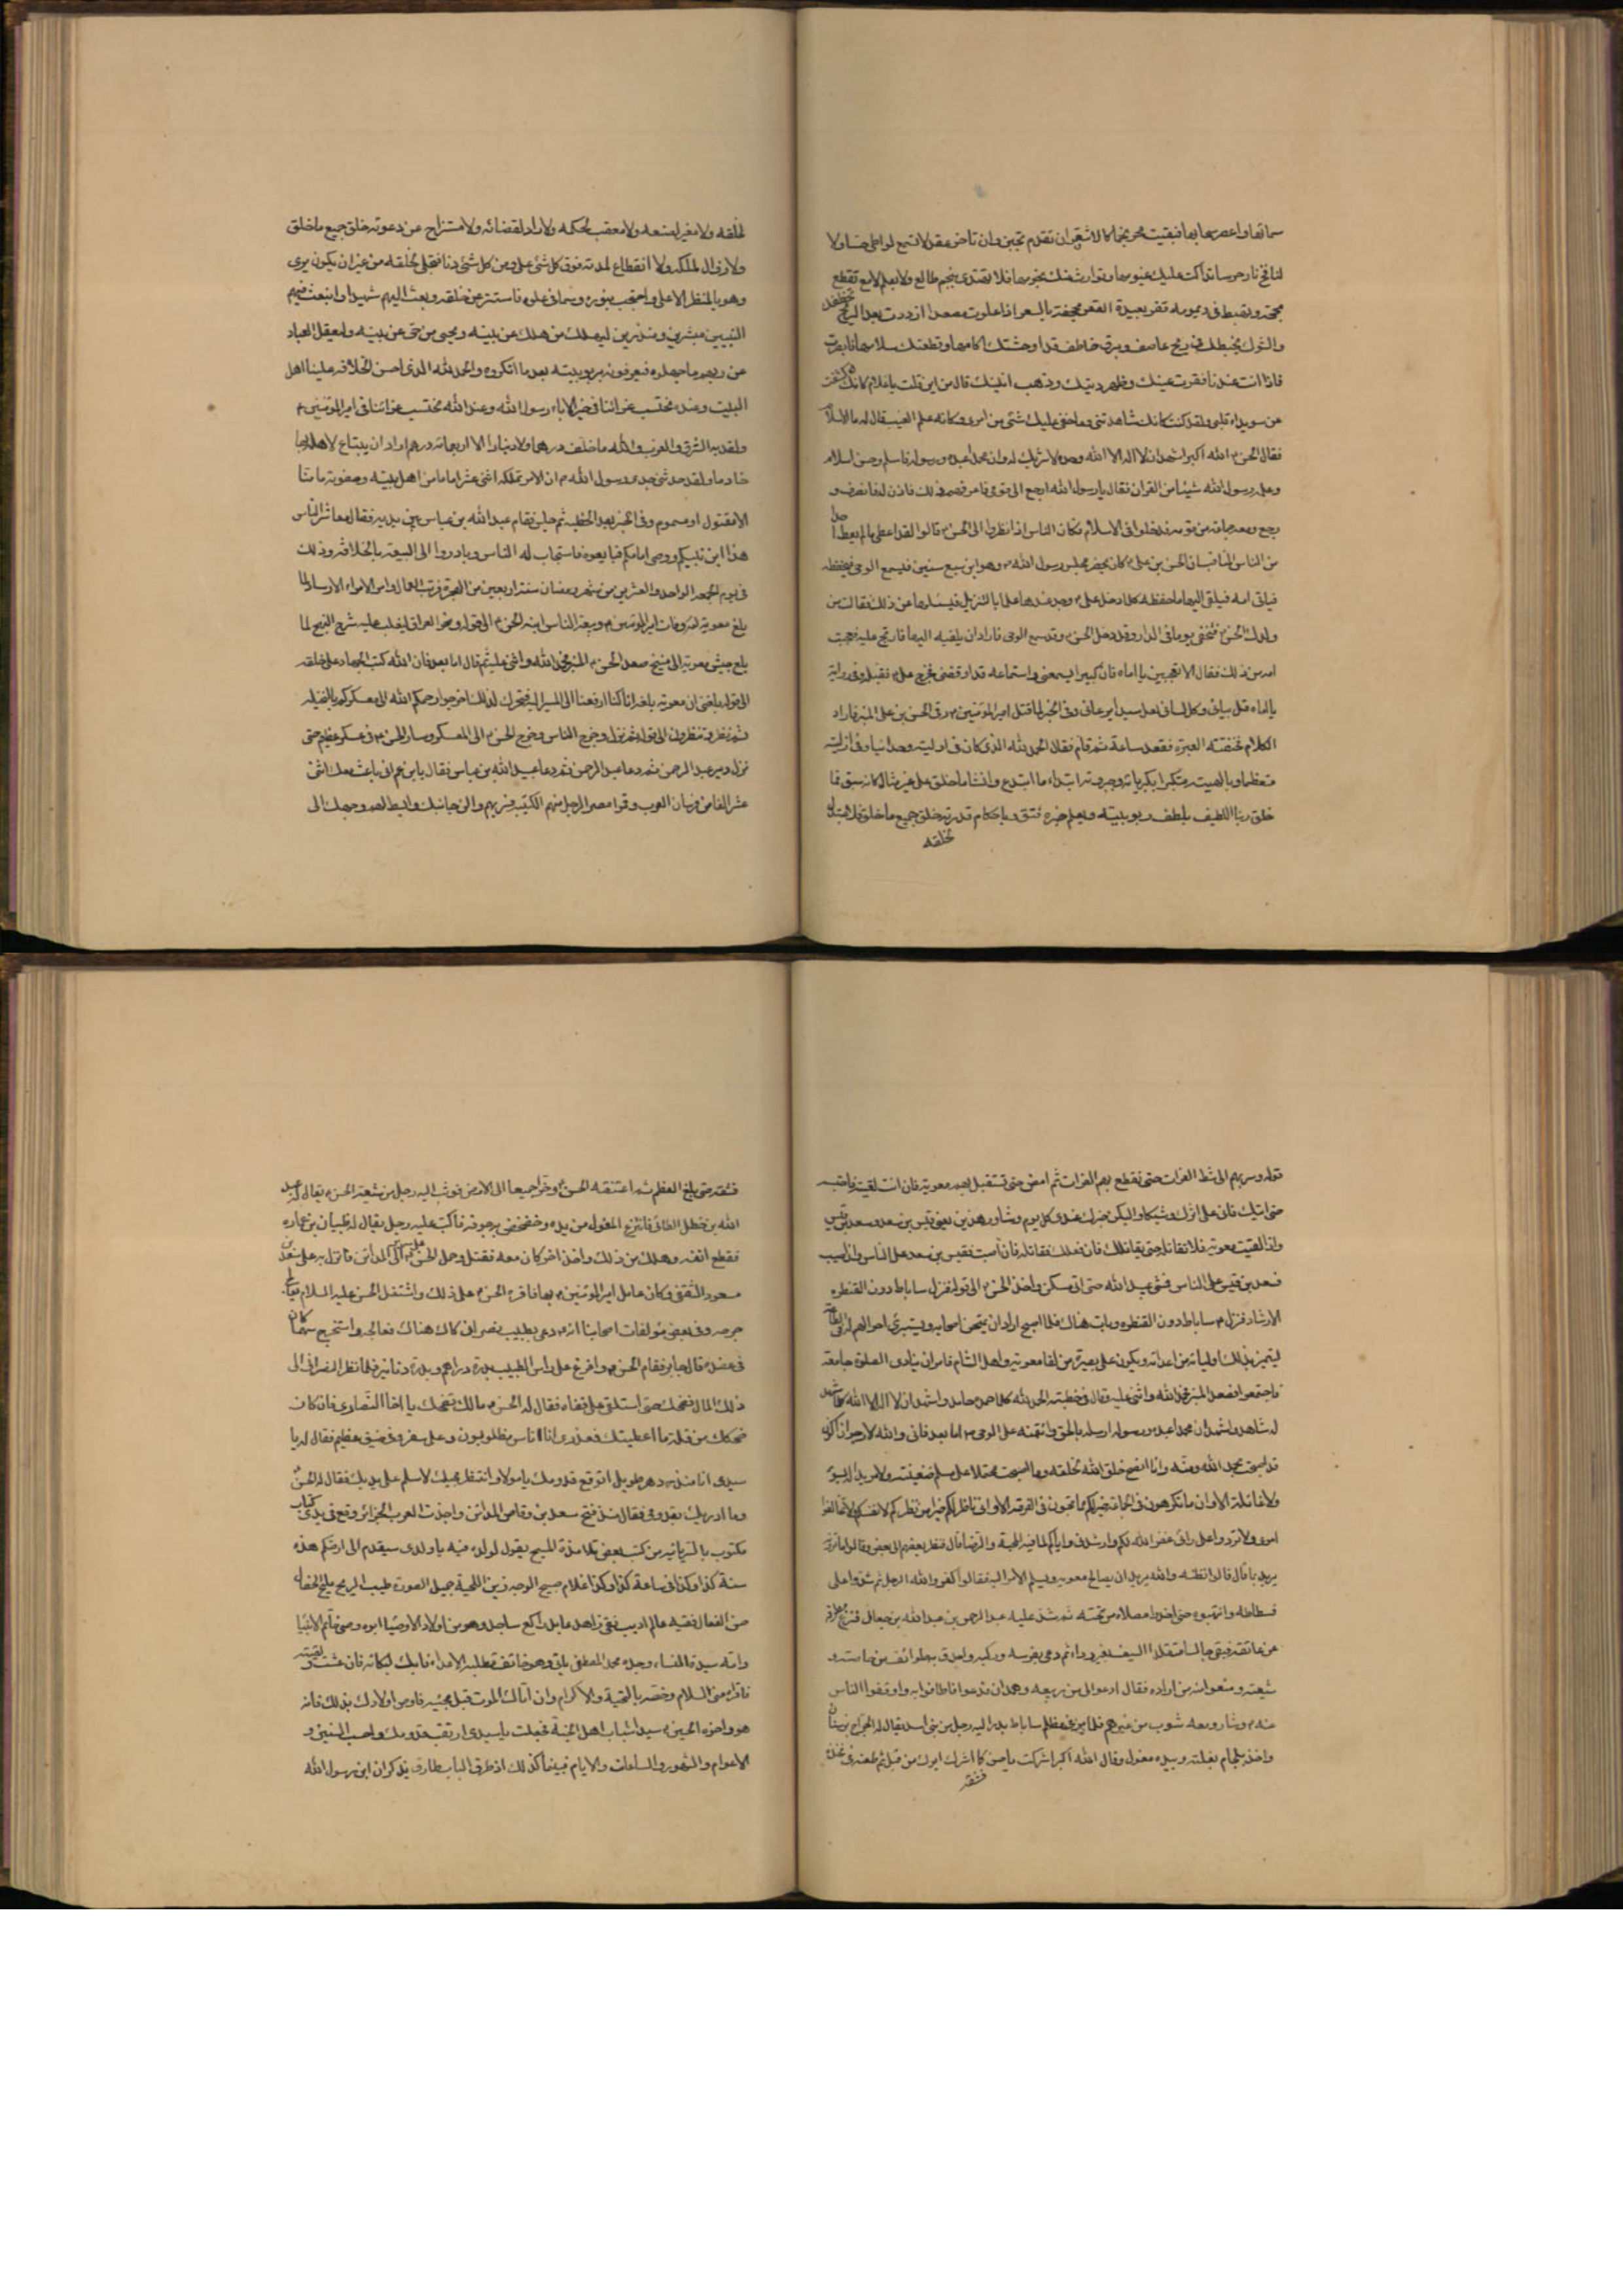 سمائها واعصر سحابها فبقيت محرنجما كالاشقر ان تقدم نحر وان تأخر عقر لا تسمع لواطئ حسا ولا
لنافخ نار جرسا تداكت عليك غيومها وتوارت عنك نجومها فلا تهتدى بنجم طالع ولا بعلم لامع تقطع
محجة وتهبط في ديمومة قفر بعيدة القعر مجحفة بالسفر اذا علوت مصعدا ازددت بعدا الريح تخطفك
والشوك يخبطك في ريح عاصف وبرق خاطف قد اوحشتك اكامها وقطعتك سلامها فابصرت
فاذا انت عندنا فقرت عينك وظهر دينك وذهب انينك قال من اين قلت يا غلام كانك كشفت
عن سويداء قلبي ولقد كنت كانك شاهدتني وما خفي عليك شئ من امري وكانه علم الغيب فقال له ما الاسلام
فقال الحسن ع الله اكبر اشهد ان لا اله الا الله وحده لا شريك له وان محمدا عبده ورسوله فاسلم وحسن اسلامه
وعلمه رسول الله شيئا من القران فقال يا رسول الله ارجع الى قومي فاعرفهم ذلك فاذن له فانصرف و
رجع ومعه جماعة من قومه فدخلوا في الاسلام فكان الناس اذا نظروا الى الحسن ع قالوا لقد اعطي ما لم يعط احد
من الناس المناقب ان الحسن بن علي ع كان يحضر مجلس رسول الله ص وهو ابن سبع سنين فيسمع الوحي فيحفظه
فياتي امه فيلقي اليها ما حفظه كلما دخل علي ع وجد عندها علما بالتنزيل فيسئلها عن ذلك فقالت من
ولدك الحسن ع فتخفى يوما في الدار وقد دخل الحسن ع وقد سمع الوحي فاراد ان يلقيه اليها فارتج عليه فعجبت
امه من ذلك فقال لا تعجبين يا اماه فان كبيرا يسمعني واستماعه قد اوقفني فخرج علي ع فقبله وفي رواية
يا اماه قل بياني وكل لساني لعل سيدا يرعاني وفي الخبر لما قتل امير المؤمنين ع رقى الحسن بن علي المنبر فاراد
الكلام فخنقته العبرة فقعد ساعة ثم قام فقال الحمد لله الذي كان في اوليته وحدانيا وفي ازليته
متعظما بالهيته متكبرا بكبريائه وجبروته ابتداء ما ابتدع وانشا ما خلق على غير مثال كان سبق مما
خلق ربنا اللطيف بلطف ربوبيته وبعلم خبره فتق وباحكام قدرته خلق جميع ما خلق فلا مبدل
لخلقه
لخلقه ولا مغير لصنعه ولا معقب لحكمه ولا راد لقضائه ولا مستزاح عن دعوته خلق جميع ما خلق
ولا زوال لملكه ولا انقطاع لمدته فوق كل شئ علا ومن كل شئ دنا فتجلى لخلقه من غير ان يكون يرى
وهو بالمنظر الاعلى واحتجب بنوره وسما في علوه فاستتر عن خلقه وبعث اليهم شهيدا وابتعث فيهم
النبيين مبشرين ومنذرين ليهلك من هلك عن بينه ويحيى من حي عن بينه وليعقل العباد
عن ربهم ما جهلوه فيعرفونه بربوبيته بعد ما انكروه والحمد لله الذي احسن الخلافة علينا اهل
البيت وعنده نحتسب عزائنا في خير الاباء رسول الله وعند الله نحتسب عزائنا في امير المؤمنين ع
ولقد به الشرق والغرب والله ما خلف درهما ولا دينارا الا اربعمائة درهم اراد ان يبتاع لاهله بها
خادما ولقد حدثني جدي رسول الله ص ان الامر تملكه اثنى عشر اماما من اهل بيته وصفوته ما منا
الا مقتول او مسموم وفي الخبر بعد الخطبه ثم جلس فقام عبد الله بن عباس بين يديه فقال معاشر الناس
هذا ابن نبيكم ووصي امامكم فبايعوه فاستجاب له الناس وبادروا الى البيعة بالخلافة وذلك
في يوم الجمعة الواحد والعشرين من شهر رمضان سنة اربعين من الهجرة فرتب العمال وامر الامراء الارساد لما
بلغ معوية لعنه وفات امير المؤمنين ع وبيعة الناس ابنه الحسن ع الى قوله نحو العراق ليغلب عليه شرح النهج لما
بلغ جيش معوية الى منبج صعد الحسن ع المنبر فحمد الله واثنى عليه ثم قال اما بعد فان الله كتب الجهاد على خلقه
الى قوله بلغني ان معوية بلغه انا كنا ازمعنا الى المسير اليه فتحرك لذلك اخرجوا رحمكم الله الى معسكركم بالنخيله
حتى ننظر وتنظرون الى قوله ثم نزل وخرج الناس وخرج الحسن ع الى المعسكر وسار الحسن ع في عسكر عظيم حتى
نزل دير عبد الرحمن ثم دعا عبيد الله بن عباس فقال يا بن عم اني باعث معك اثنى
عشر الفا من فرسان العرب وقراء مصر الرجل منهم الكتيبة فسر بهم والن جانبك وابسط لهم وجهك الى
قوله وسر بهم الى شط الفرات حتى تقطع بهم الفرات ثم امض حتى تستقبل بهم معوية فان انت لقيته فاحتبسه
حتى اتيك فاني على اثرك وشيكا وليكن خبرك عندي كل يوم وشاور هذين يعني قيس بن سعد وسعد بن قيس
واذا لقيت معوية فلا تقاتله حتى يقاتلك فان فعل فقاتله فان اصبت فقيس بن سعد على الناس وان اصيب
فسعد بن قيس على الناس فمشى عبيد الله حتى اتى مسكن واخذ الحسن ع الى قوله فنزل ساباط دون القنطره
الارشاد فنزل ساباط دون القنطره وبات هناك فلما اصبح اراد ان يمتحن اصحابه ويستبرئ احوالهم له في الطاعة
ليتميز بذلك اوليائه من اعدائه ويكون على بصيرة من لقاء معوية واهل الشام فامر ان ينادى الصلوة جامعة
فاجتمعوا فصعد المنبر فحمد الله واثنى عليه وقال في خطبته الحمد لله كلما حمده حامد واشهد ان لا اله الا الله كلما شهد
له شاهد واشهد ان محمدا عبده ورسوله ارسله بالحق وائتمنه على الوحي ص اما بعد فاني والله لارجو ان اكون
قد اصبحت بحمد الله ومنه وانا انصح خلق الله لخلقه وما اصبحت محتملا على مسلم ضغينته ولا مريدا له بسوء
ولا غائلة الا وان ما تكرهون في الجماعة خير لكم مما تحبون في الفرقة الا واني ناظر لكم خيرا من نظركم لانفسكم فلا تخالفوا
امري ولا تردوا على رائي غفر الله لكم وارشدني واياكم لما فيه المحبة والرضا قال فنظر بعضهم الى بعض وقالوا ما ترونه
يريد بما قال قالوا نظنه والله يريد ان يصالح معويه ويسلم الامر اليه فقالوا كفر والله الرجل ثم شدوا على
فسطاطه وانتهبوه حتى اخذوا مصلاه من تحته ثم شد عليه عبد الرحمن بن عبد الله بن جعال فنزع مطرفه
عن عاتقه فبقي جالسا متقلدا السيف بغير رداء ثم دعى بفرسه وركبه واحدق به طوائف من خاصته و
شيعته ومنعوا منه من اراده فقال ادعوا لي من ربيعه وهمدان فدعوا فاطافوا به ودفعوا الناس
عنه ع وسار ومعه شوب من غيرهم فلما مر في مظلم ساباط بدر اليه رجل من بني اسد يقال له الجراح بن سنان
واخذ بلجام بغلته وبيده مغول وقال الله اكبر اشركت يا حسن كما اشرك ابوك من قبل ثم طعنه في فخذه
فشقه
فشقه حتى بلغ العظم ثم اعتنقه الحسن ع وخرا جميعا الى الارض فوثب اليه رجل من شيعة الحسن ع يقال له عبد
الله بن خطل الطائي فانتزع المغول من يده وخضخض به جوفه فاكب عليه رجل يقال له ظبيان بن عماره
فقطع انفه وهلك من ذلك واخذ اخر كان معه فقتل وحمل الحسن ع على سرير الى المدائن فانزل به على سعد بن
مسعود الثقفي وكان عامل امير المؤمنين ع بها فاقره الحسن ع على ذلك واشتغل الحسن عليه السلام يعالج
جرحه وفي بعض مؤلفات اصحابنا انه ع دعى بطبيب نصراني كان هناك فعالجه واستخرج سهما كان
في عضده قال جابر فقام الحسن ع وافرغ على راس الطبيب بدرة دراهم وبدرة دنانير فلما نظر النصراني الى
ذلك المال ضحك حتى استلقى على قفاه فقال له الحسن ع مالك تضحك يا اخا النصارى فان كان
ضحكك من قلة ما اعطيتك فعذرى انا اناس مظلومون وعلى سفر وفي ضيق عظيم فقال له يا
سيدي انا منذ دهر طويل اتوقع قدومك يا مولاي وانتظر مجيئك لاسلم على يديك فقال له الحسن ع
وما ادريك بقدومي فقال منذ فتح سعد بن وقاص المدائن واخذت العرب الجزائر وقع في يدي كتاب
مكتوب بالسريانيه من كتب بعض تلامذة المسيح يقول لولده فيه يا ولدي سيقدم الى ارضكم هذه
سنة كذا وكذا في ساعة كذا وكذا غلام صبيح الوجه زين اللحية جميل الصورة طيب الريح مليح الخصال
حسن الفعال فقيه عالم اديب تقي زاهد عابد راكع ساجد وهو من اولاد الاوصيا ابوه وصي خاتم الانبيا
وامه سيدة النساء وجده محمد المصطفى ياتي وهو خائف تطلبه الاعداء فابك لبكائه فان عشت ولقيته
فاقراه مني السلام وخصه بالتحية والاكرام وان اتاك الموت قبل مجيئه فاوص اولادك بذلك فانه
هو واخوه الحسين ع سيدا شباب اهل الجنة فجعلت يا سيدي ارتقب قدومك واحسب السنين و
الاعوام والشهور والساعات والايام فبينما كذلك اذ طرق الباب طارق يذكر ان ابن رسول الله